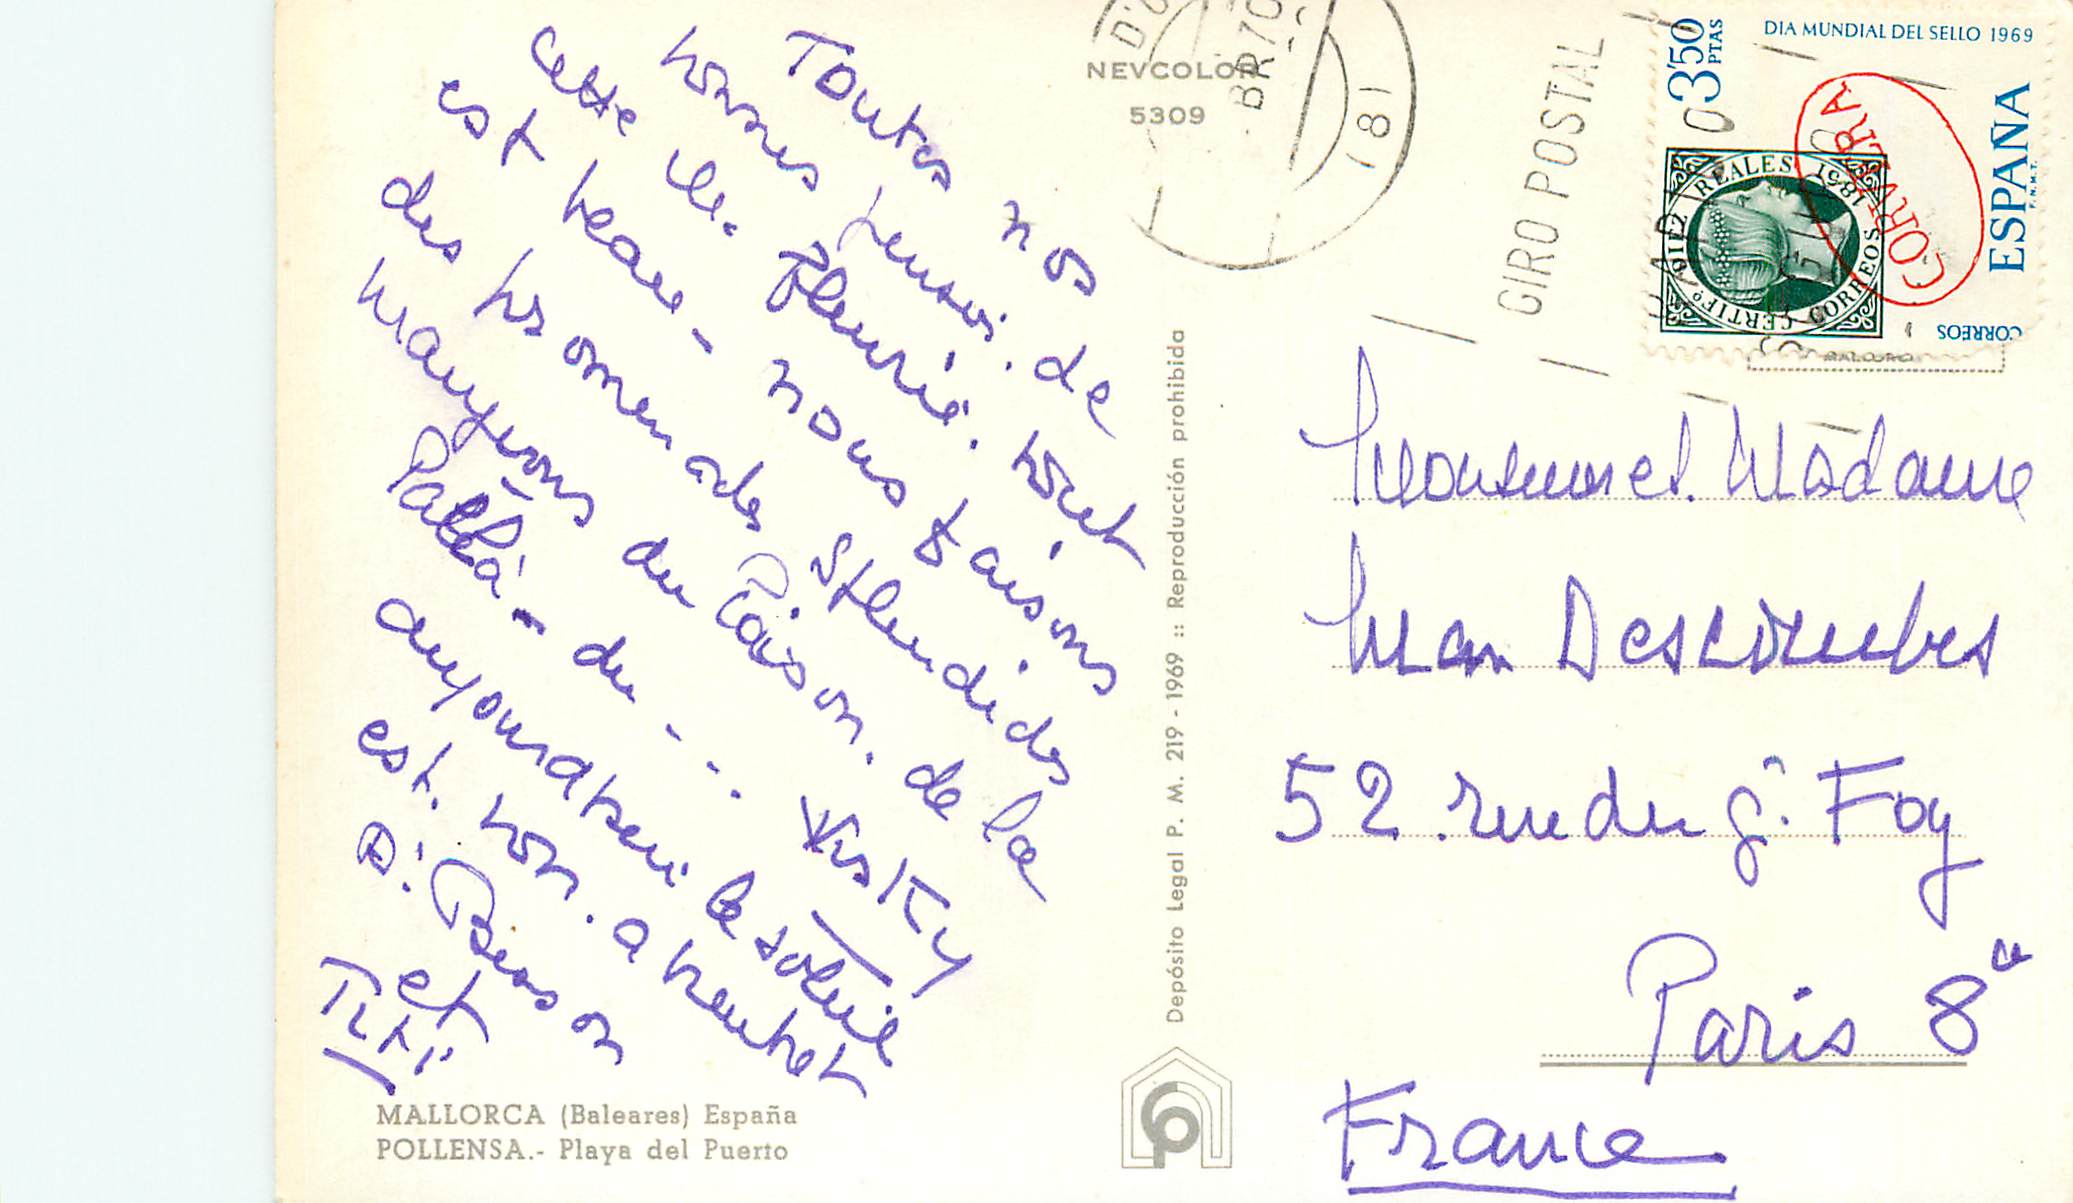 Toutes nos
bonnes pensées. de
cette île. fleurie. tout
est beau - nous faisons
des promenades splendides
mangeons du Poisson. de la
Paëlla - du - - . Wisky
aujourd'hui le soleil
est. bon. a

et
Titi
MALLORCA (Baleares) España
POLLENSA.- Playa del Puerto
NEVCOLOR
5309
Depósito Legal P. M. 219 - 1969 :: Reproducción prohibida
181
GIRO POSTAL
DIA MUNDIAL DEL SELLO 1969
3'50 PTAS
ESPAÑA
F.N.M.T.
CORREOS
CERTIFº 6 REALES 1851 CORREOS
CORVERA
Monsieur et. Madame
Descombes
52 . rue du Gl. Foy
Paris 8e
France